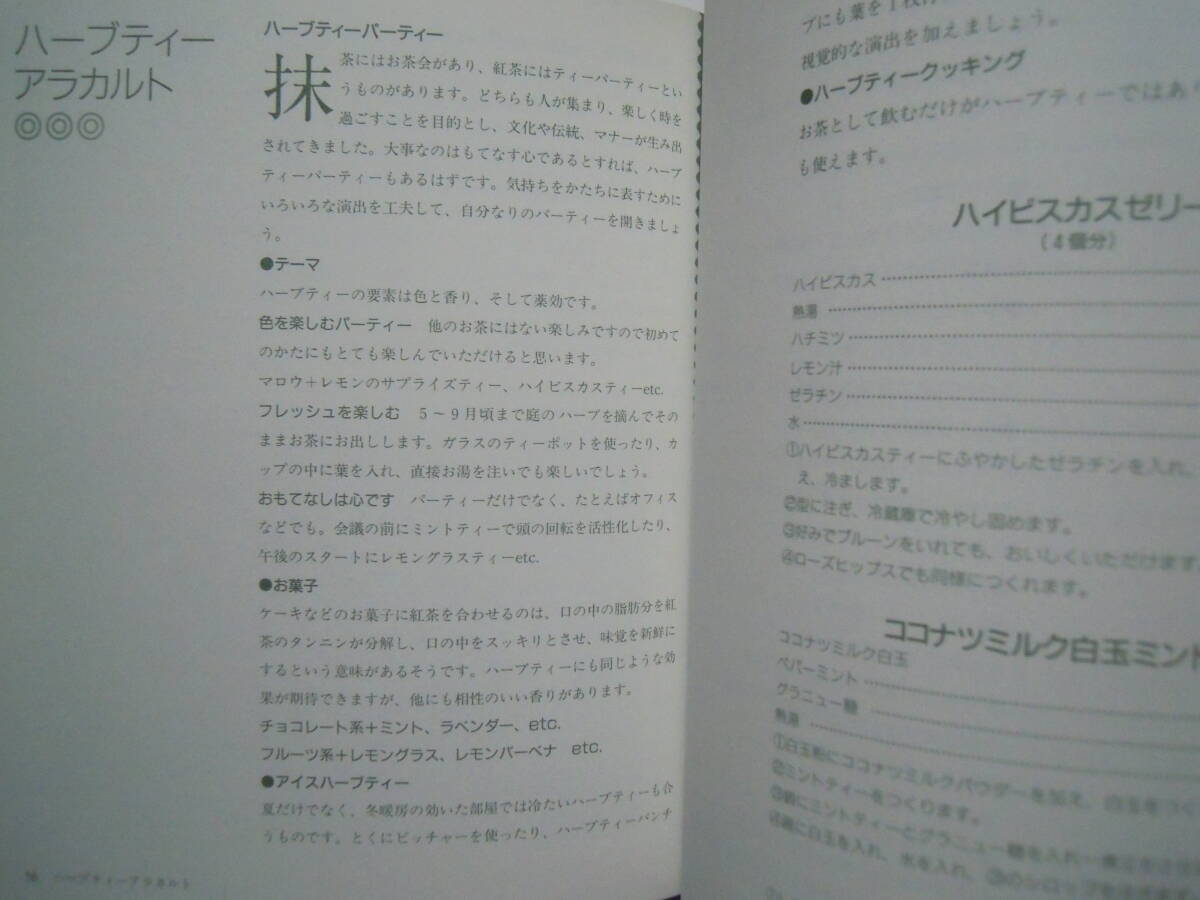 ハーブティー
アラカルト
◎◎◎
ハーブティーパーティー
抹茶にはお茶会があり、紅茶にはティーパーティーとい
うものがあります。どちらも人が集まり、楽しく時を
過ごすことを目的とし、文化や伝統、マナーが生み出
されてきました。大事なのはもてなす心であるとすれば、ハーブ
ティーパーティーもあるはずです。気持ちをかたちに表すために
いろいろな演出を工夫して、自分なりのパーティーを開きましょ
う。
●テーマ
ハーブティーの要素は色と香り、そして薬効です。
色を楽しむパーティー　他のお茶にはない楽しみですので初めて
のかたにもとても楽しんでいただけると思います。
マロウ＋レモンのサプライズティー、ハイビスカスティーetc.
フレッシュを楽しむ　5～9月頃まで庭のハーブを摘んでその
ままお茶にお出しします。ガラスのティーポットを使ったり、カ
ップの中に葉を入れ、直接お湯を注いでも楽しいでしょう。
おもてなしは心です　パーティーだけでなく、たとえばオフィス
などでも。会議の前にミントティーで頭の回転を活性化したり、
午後のスタートにレモングラスティーetc.
●お菓子
ケーキなどのお菓子に紅茶を合わせるのは、口の中の脂肪分を紅
茶のタンニンが分解し、口の中をスッキリとさせ、味覚を新鮮に
するという意味があるそうです。ハーブティーにも同じような効
果が期待できますが、他にも相性のいい香りがあります。
チョコレート系＋ミント、ラベンダー、etc.
フルーツ系＋レモングラス、レモンバーベナ　etc.
●アイスハーブティー
夏だけでなく、冬暖房の効いた部屋では冷たいハーブティーも合
うものです。とくにピッチャーを使ったり、ハーブティーパンチ
ハーブティーアラカルト
プにも葉を1枚
視覚的な演出を加えましょう。
●ハーブティークッキング
お茶として飲むだけがハーブティーではあり
も使えます。
ハイビスカスゼリー
（4個分）
ハイビスカス
熱湯
ハチミツ
レモン汁
ゼラチン
水
①ハイビスカスティーにふやかしたゼラチンを入れ、
え、冷まします。
②型に注ぎ、冷蔵庫で冷やし固めます。
③好みでプルーンをいれても、おいしくいただけます。
④ローズヒップスでも同様につくれます。
ココナツミルク白玉ミント
ココナツミルク白玉
ペパーミント
グラニュー糖
熱湯
①白玉粉にココナツミルクパウダーを加え、白玉をつく
②ミントティーをつくります。
③鍋にミントティーとグラニュー糖を入れ
④器に白玉を入れ、氷を入れ、③のシロップを